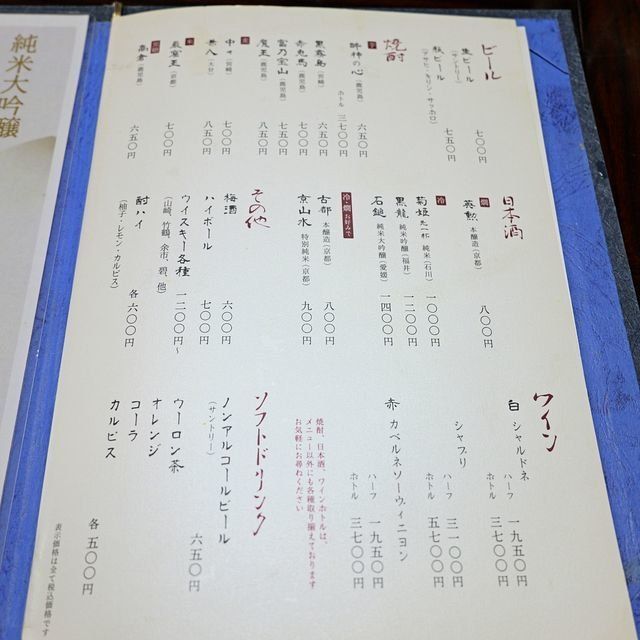 ビール
生ビール
(サントリー)
七〇〇円
瓶ビール
(アサヒ・キリン・サッポロ)
七五〇円
焼酎
芋
酔神の心(鹿児島)
六五〇円
ボトル 三七〇〇円
黒霧島(宮崎)
六五〇円
赤兎馬(鹿児島)
七〇〇円
富乃宝山(鹿児島)
七五〇円
魔王(鹿児島)
八五〇円
麦
中々(宮崎)
七〇〇円
兼八(大分)
八五〇円
米
(京都)
七〇〇円
高倉(鹿児島)
六五〇円
日本酒
燗
英勲 本醸造(京都)
八〇〇円
冷
菊姫 純米(石川)
一〇〇〇円
黒龍 純米吟醸(福井)
一二〇〇円
石鎚 純米大吟醸(愛媛)
一四〇〇円
冷 燗 お好みで
古都 本醸造(京都)
八〇〇円
京山水 特別純米(京都)
九〇〇円
その他
梅酒
六〇〇円
ハイボール
七〇〇円
ウイスキー各種
(山崎、竹鶴、余市、碧、他)
一二〇〇円~
酎ハイ
(柚子・レモン・カルピス)
各 六〇〇円
ワイン
白 シャルドネ
ハーフ 一九五〇円
ボトル 三七〇〇円
シャブリ
ハーフ 三一〇〇円
ボトル 五七〇〇円
赤 カベルネソーヴィニヨン
ハーフ 一九五〇円
ボトル 三七〇〇円
焼酎、日本酒、ワインボトルは、
メニュー以外にも各種取り揃えております
お気軽にお尋ねください
ソフトドリンク
ノンアルコールビール
(サントリー)
六五〇円
ウーロン茶
オレンジ
コーラ
カルピス
各 五〇〇円
表示価格は全て税込価格です
純米大吟醸